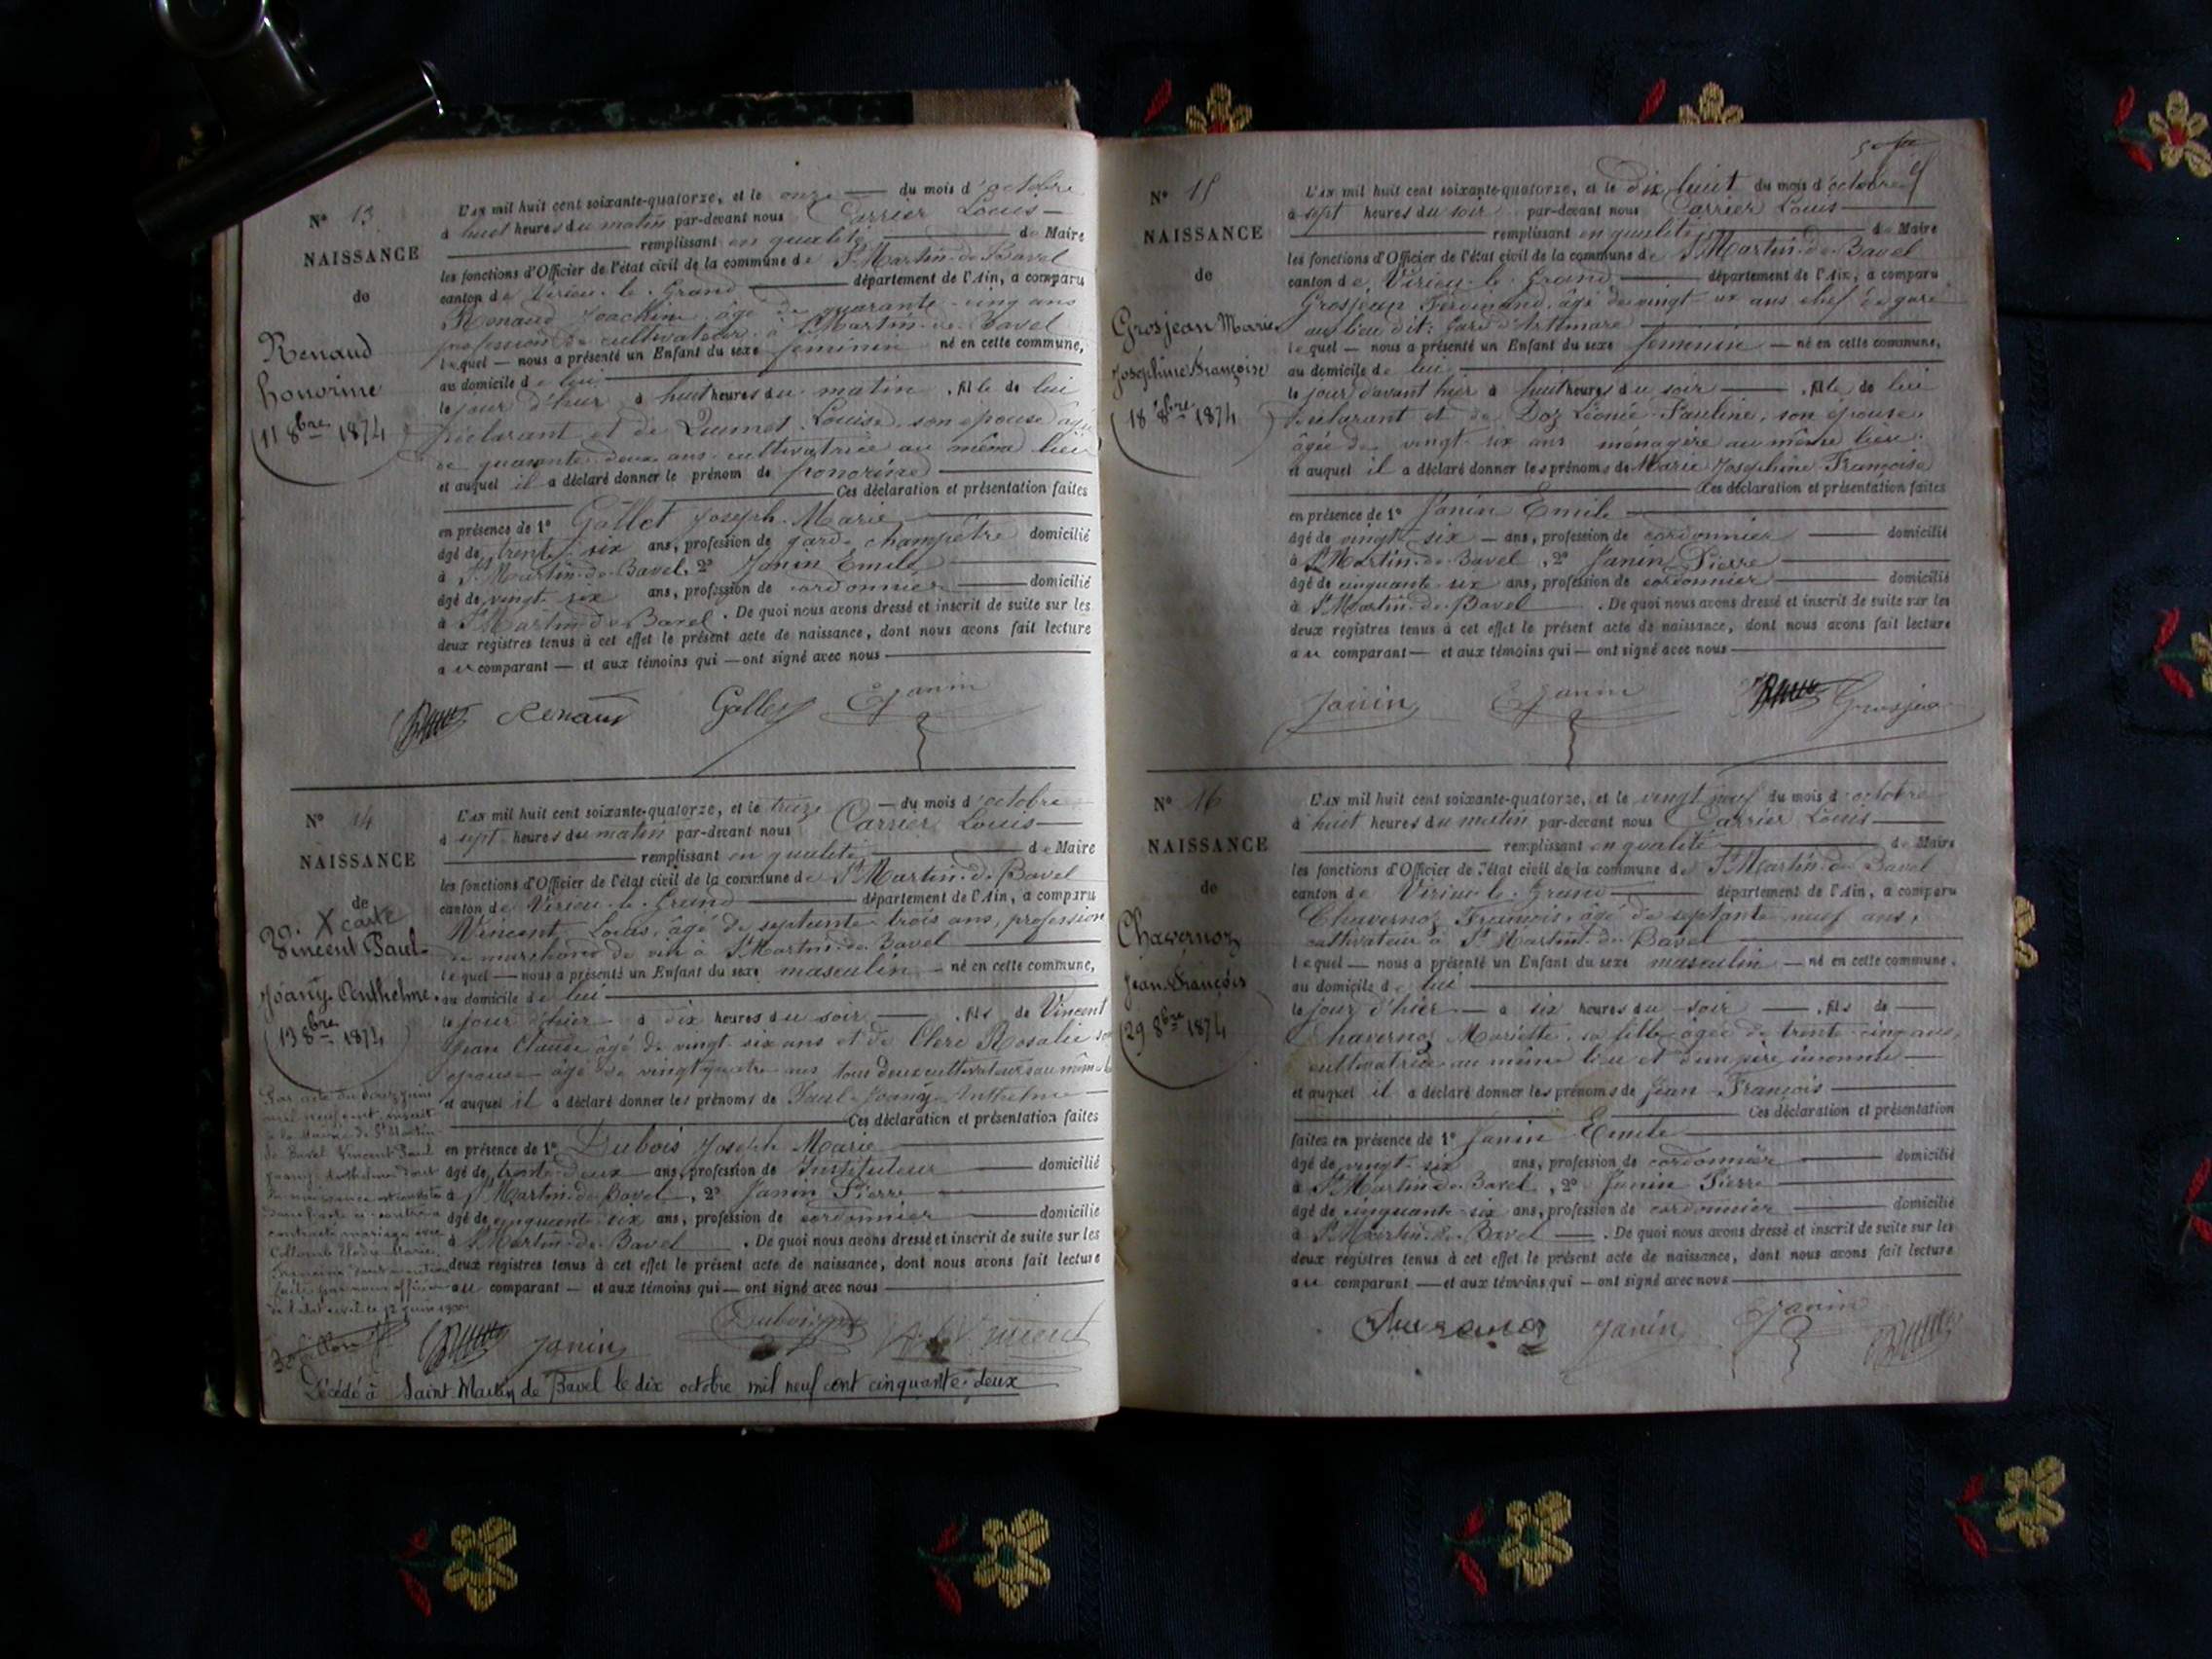 N° 13
NAISSANCE
de
Renaud
honorine
(11 8bre 1874
L'an mil huit cent soixante-quatorze, et le onze — du mois d'octobre
à huit heures du matin par-devant nous Carrier Louis —
remplissant en qualité de Maire
les fonctions d'Officier de l'état civil de la commune de St Martin-de-Bavel
canton de Virieu-le-Grand — département de l'Ain, a comparu
Renaud Joachim, âgé de quarante-cinq ans
profession de cultivateur à St Martin-de-Bavel
lequel — nous a présenté un Enfant du sexe féminin né en cette commune,
au domicile de lui
le jour d'hier à huit heures du matin, fille de lui
déclarant et de Louise, son épouse âgée
de quarante-deux ans cultivatrice au même lieu
et auquel il a déclaré donner le prénom de honorine
Ces déclaration et présentation faites
en présence de 1° Gallet Joseph-Marie
âgé de trente-six ans, profession de garde champêtre domicilié
à St Martin-de-Bavel, 2° Janin Emile
âgé de vingt-six ans, profession de cordonnier — domicilié
à St Martin-de-Bavel. De quoi nous avons dressé et inscrit de suite sur les
deux registres tenus à cet effet le présent acte de naissance, dont nous avons fait lecture
au comparant — et aux témoins qui — ont signé avec nous
Renaud Gallet E Janin
N° 14
NAISSANCE
de
X carte
Vincent Paul-
Joany-Anthelme.
(13 8bre 1874
L'an mil huit cent soixante-quatorze, et le treize — du mois d'octobre
à sept heures du matin par-devant nous Carrier Louis —
remplissant en qualité de Maire
les fonctions d'Officier de l'état civil de la commune de St Martin-de-Bavel
canton de Virieu-le-Grand — département de l'Ain, a comparu
Vincent Louis, âgé de septante-trois ans, profession
de marchand de vin à St Martin-de-Bavel
lequel — nous a présenté un Enfant du sexe masculin — né en cette commune,
au domicile de lui
le jour d'hier à dix heures du soir —, fils de Vincent
Jean Claude âgé de vingt-six ans et de Clerc Rosalie son
épouse âgée de vingt quatre ans tous deux cultivateurs au même lieu
et auquel il a déclaré donner les prénoms de Paul-Joany-Anthelme
Ces déclaration et présentation faites
en présence de 1° Dubois Joseph Marie
âgé de trente-deux ans, profession de Instituteur — domicilié
à St Martin-de-Bavel, 2° Janin Pierre
âgé de cinquante-six ans, profession de cordonnier — domicilié
à St Martin-de-Bavel. De quoi nous avons dressé et inscrit de suite sur les
deux registres tenus à cet effet le présent acte de naissance, dont nous avons fait lecture
au comparant — et aux témoins qui — ont signé avec nous
Janin Dubois Vincent
Décédé à Saint-Martin de Bavel le dix octobre mil neuf cent cinquante-deux
N° 15
NAISSANCE
de
Grosjean Marie
Joséphine Françoise
(18 8bre 1874
L'an mil huit cent soixante-quatorze, et le dix huit du mois d'octobre
à sept heures du soir par-devant nous Carrier Louis
remplissant en qualité de Maire
les fonctions d'Officier de l'état civil de la commune de St Martin-de-Bavel
canton de Virieu-le-Grand — département de l'Ain, a comparu
Grosjean Ferdinand, âgé de vingt-six ans chef de gare
au lieu dit: Gare d'Artemare
lequel — nous a présenté un Enfant du sexe féminin — né en cette commune,
au domicile de lui
le jour d'avant hier à huit heures du soir —, fille de lui
déclarant et de Doz Léonie-Pauline, son épouse
âgée de vingt-six ans ménagère au même lieu
et auquel il a déclaré donner les prénoms de Marie Joséphine Françoise
Ces déclaration et présentation faites
en présence de 1° Janin Emile
âgé de vingt-six — ans, profession de cordonnier — domicilié
à St Martin-de-Bavel, 2° Janin Pierre
âgé de cinquante-six ans, profession de cordonnier — domicilié
à St Martin-de-Bavel. De quoi nous avons dressé et inscrit de suite sur les
deux registres tenus à cet effet le présent acte de naissance, dont nous avons fait lecture
au comparant — et aux témoins qui — ont signé avec nous
Janin E Janin Grosjean
N° 16
NAISSANCE
de
Chavernoz
Jean-François
(29 8bre 1874
L'an mil huit cent soixante-quatorze, et le vingt neuf du mois d'octobre
à huit heures du matin par-devant nous Carrier Louis
remplissant en qualité de Maire
les fonctions d'Officier de l'état civil de la commune de St Martin-de-Bavel
canton de Virieu-le-Grand — département de l'Ain, a comparu
Chavernoz François, âgé de septante neuf ans,
cultivateur à St Martin-de-Bavel
lequel — nous a présenté un Enfant du sexe masculin — né en cette commune,
au domicile de lui
le jour d'hier — à six heures du soir —, fils de —
Chavernoz Mariette, sa fille âgée de trente-cinq ans,
cultivatrice au même lieu et d'un père inconnu —
et auquel il a déclaré donner les prénoms de Jean-François
Ces déclaration et présentation
faites en présence de 1° Janin Emile
âgé de vingt-six ans, profession de cordonnier — domicilié
à St Martin-de-Bavel, 2° Janin Pierre
âgé de cinquante-six ans, profession de cordonnier — domicilié
à St Martin-de-Bavel —. De quoi nous avons dressé et inscrit de suite sur les
deux registres tenus à cet effet le présent acte de naissance, dont nous avons fait lecture
au comparant — et aux témoins qui — ont signé avec nous
Janin E Janin